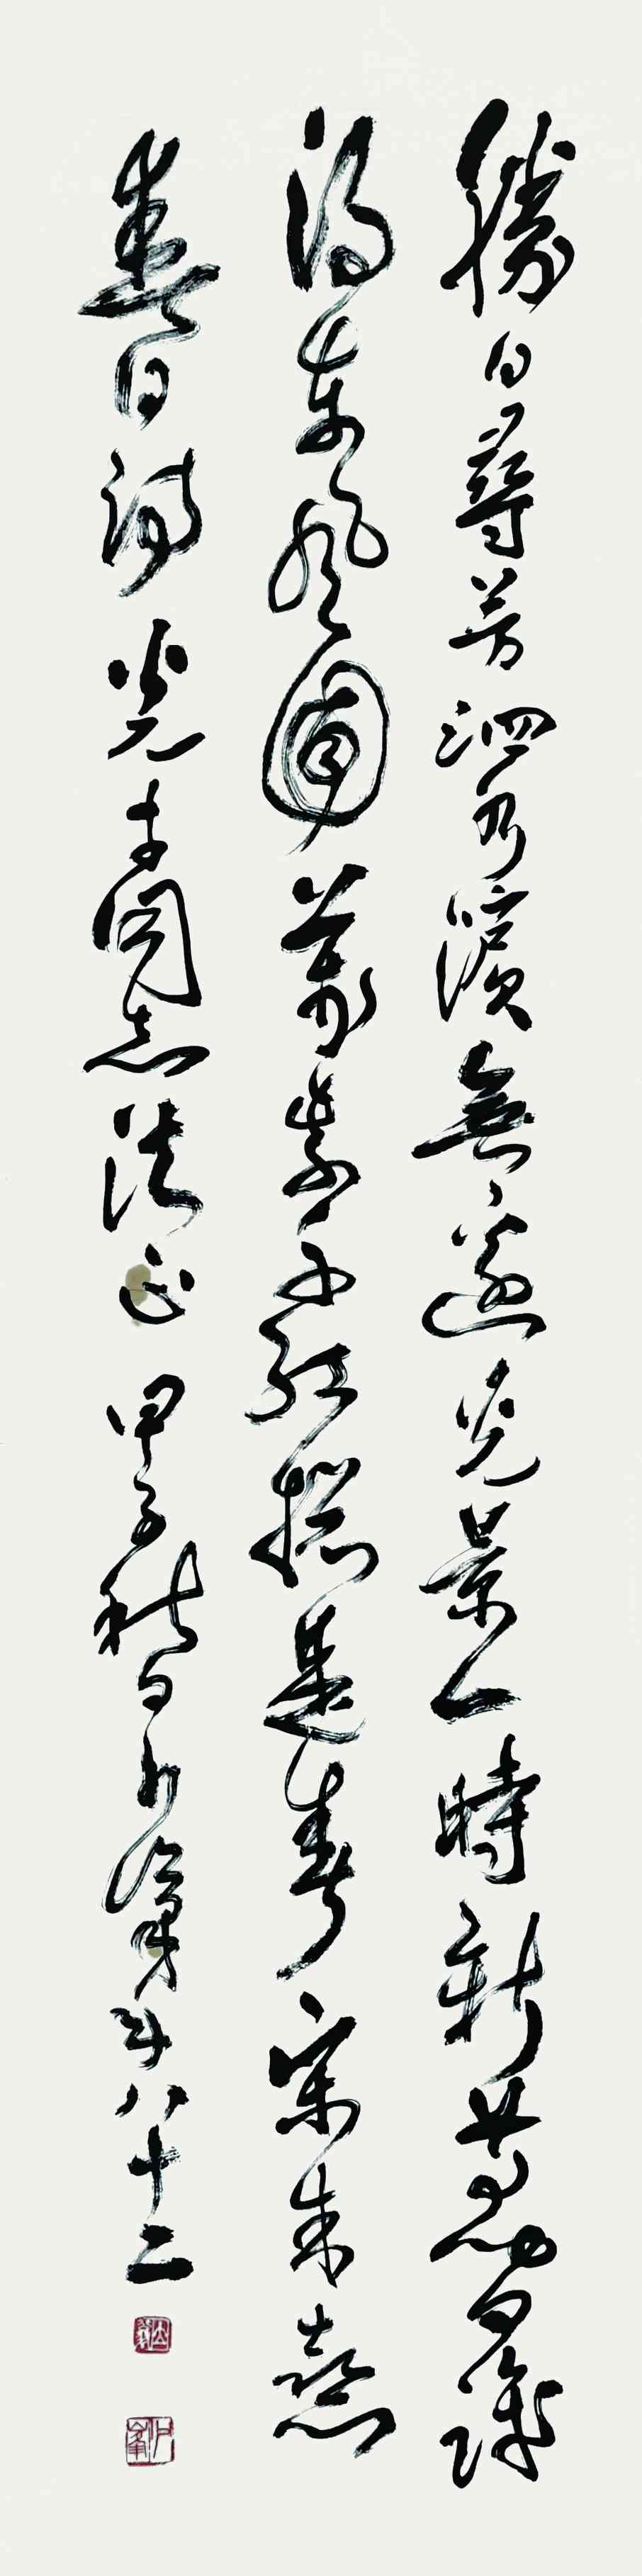 勝日尋芳泗水濱無邊光景一時新等閒識
得東風面萬紫千紅總是春宋朱熹
春日詩 光同志法正 甲子秋日年八十二